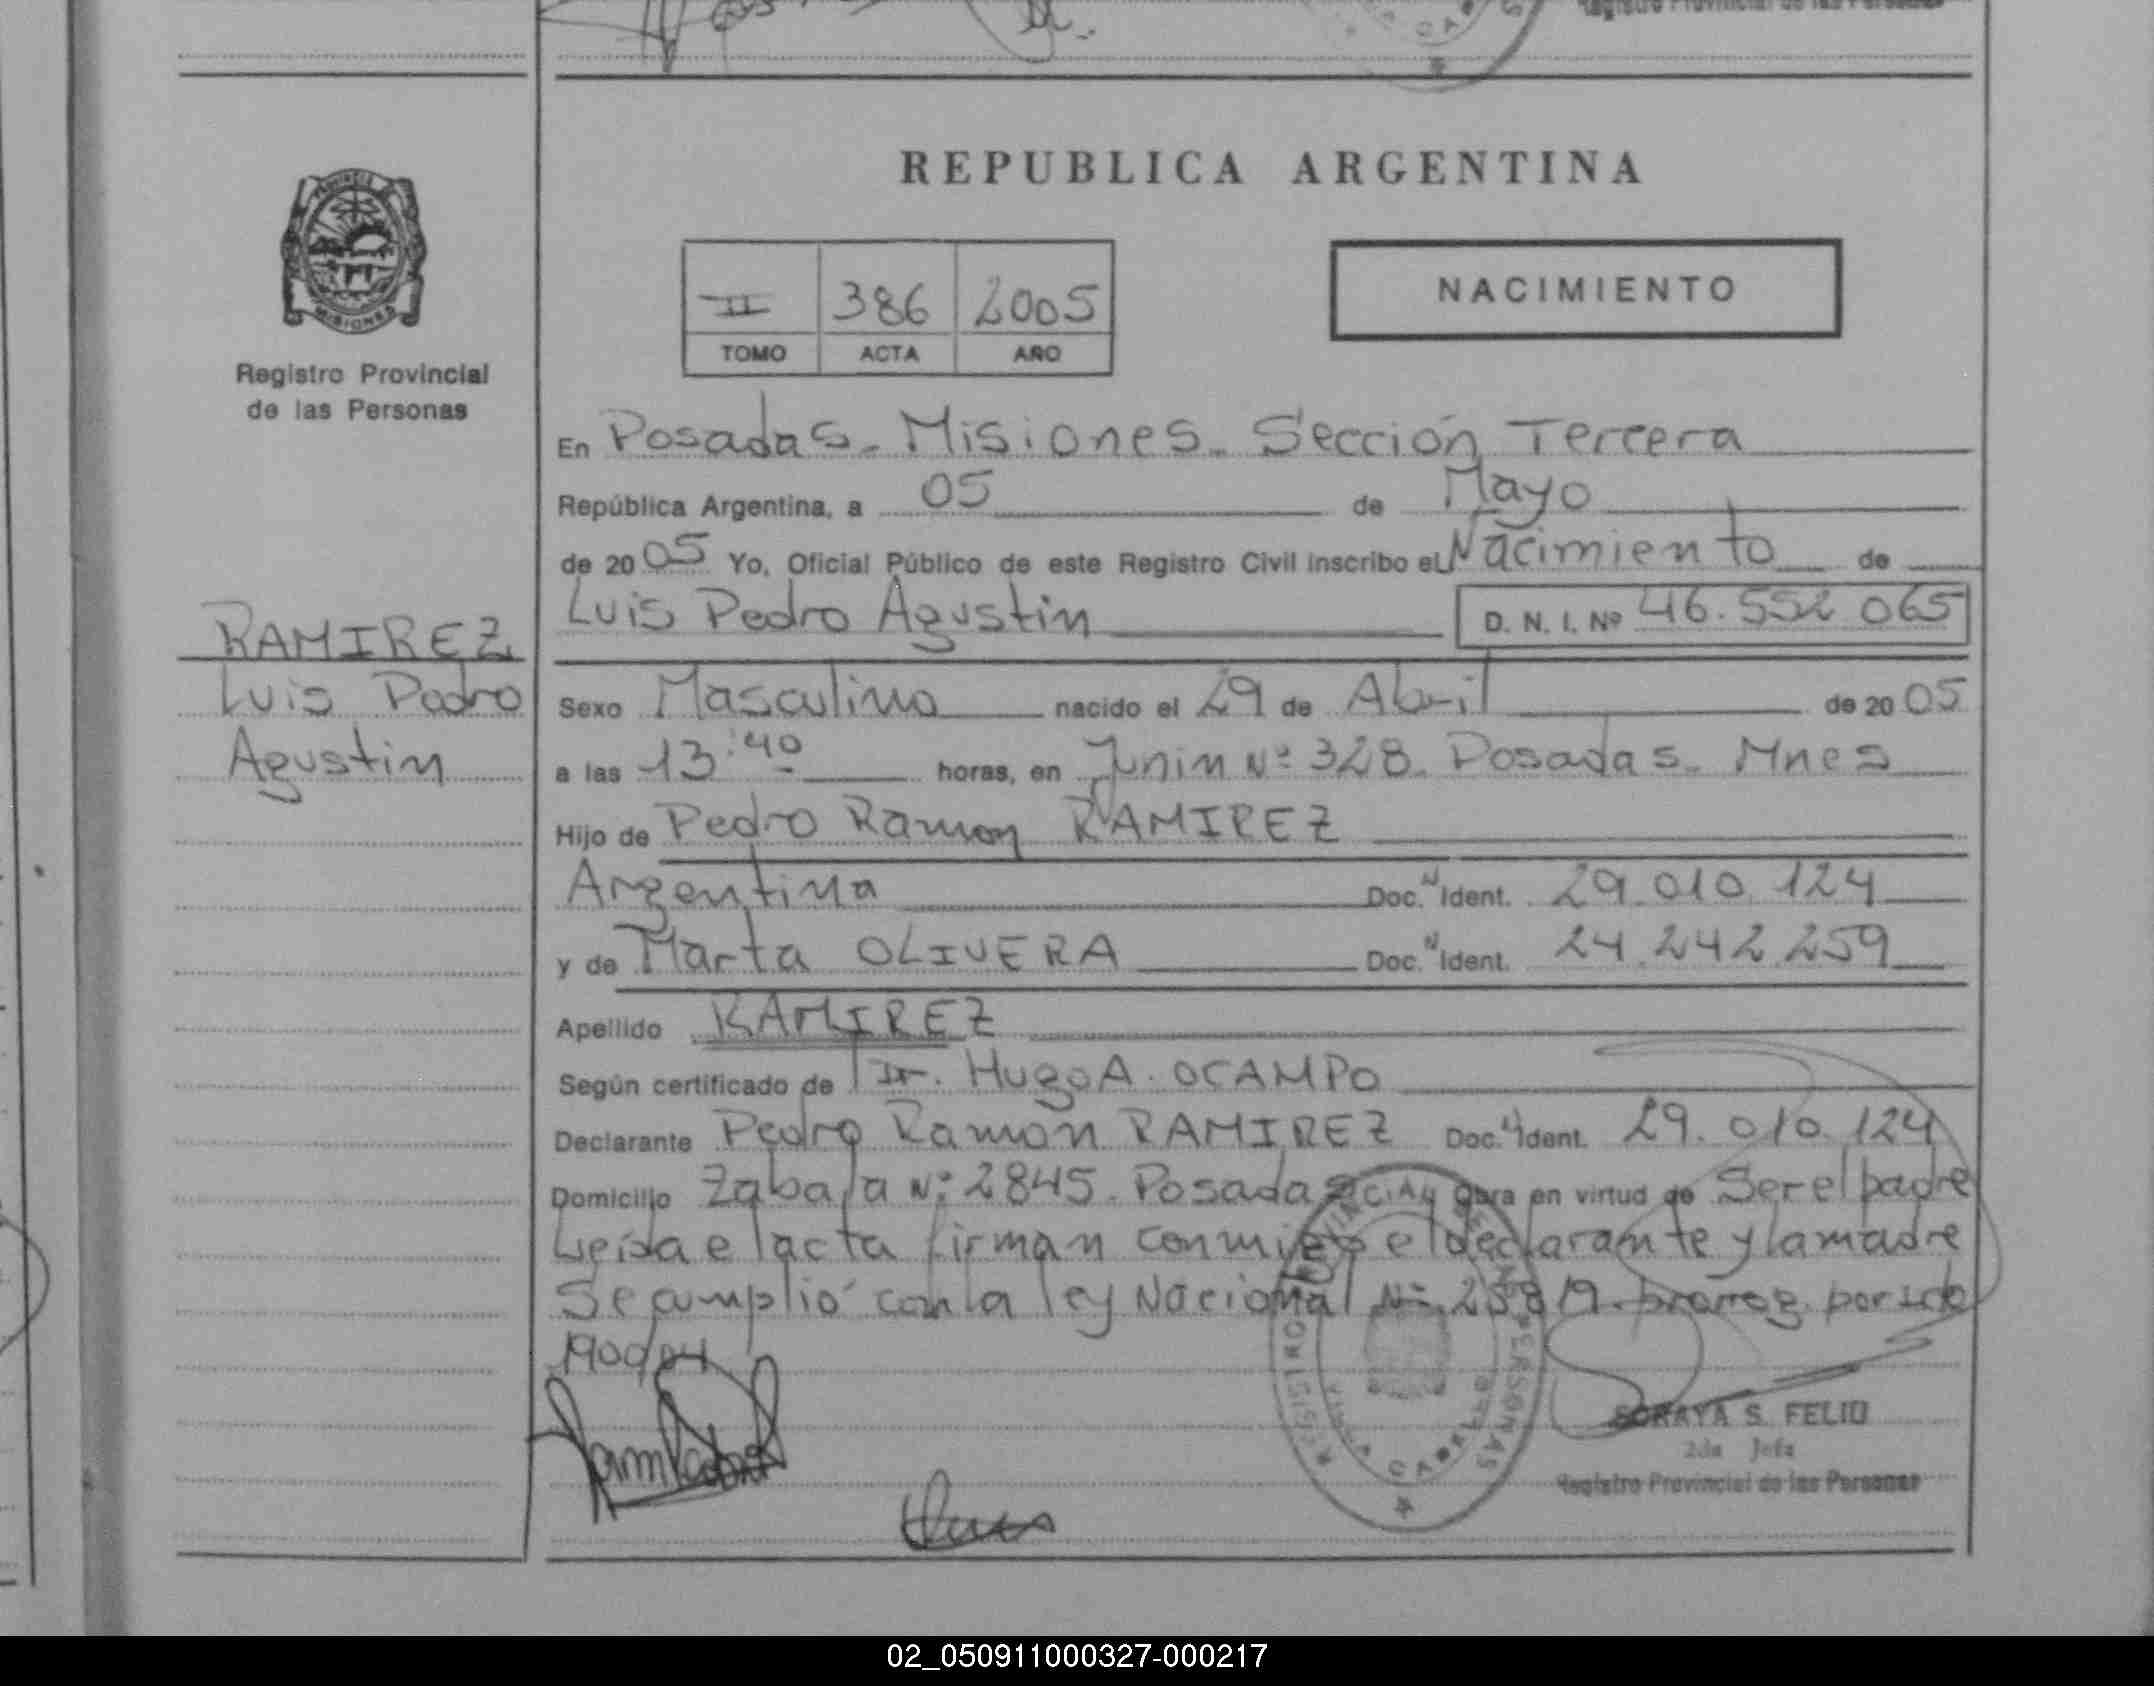 Registro Provincial de las Personas
REPUBLICA ARGENTINA
II 386 2005
TOMO ACTA AÑO
NACIMIENTO
MISIONES
Registro Provincial
de las Personas
RAMIREZ
Luis Pedro
Agustin
En Posadas - Misiones - Sección Tercera
República Argentina, a 05 de Mayo
de 2005 Yo, Oficial Público de este Registro Civil inscribo el Nacimiento de
Luis Pedro Agustin D. N. I. Nº 46.552.065
Sexo Masculino nacido el 29 de Abril de 2005
a las 13:40 horas, en Junin Nº 328. Posadas - Mnes
Hijo de Pedro Ramon RAMIREZ
Argentina Doc. N Ident. 29.010.124
y de Marta OLIVERA Doc. N Ident. 24.242.259
Apellido RAMIREZ
Según certificado de Dr. Hugo A. OCAMPO
Declarante Pedro Ramón RAMIREZ Doc. N Ident. 29.010.124
Domicilio Zabala Nº 2845. Posadas Obra en virtud de Ser el padre
Leída el acta firman conmigo el declarante y la madre
Se cumplió con la ley Nacional Nº 25819. prorrog. por
SORAYA S. FELIU
2da Jefa
Registro Provincial de las Personas
02_050911000327-000217